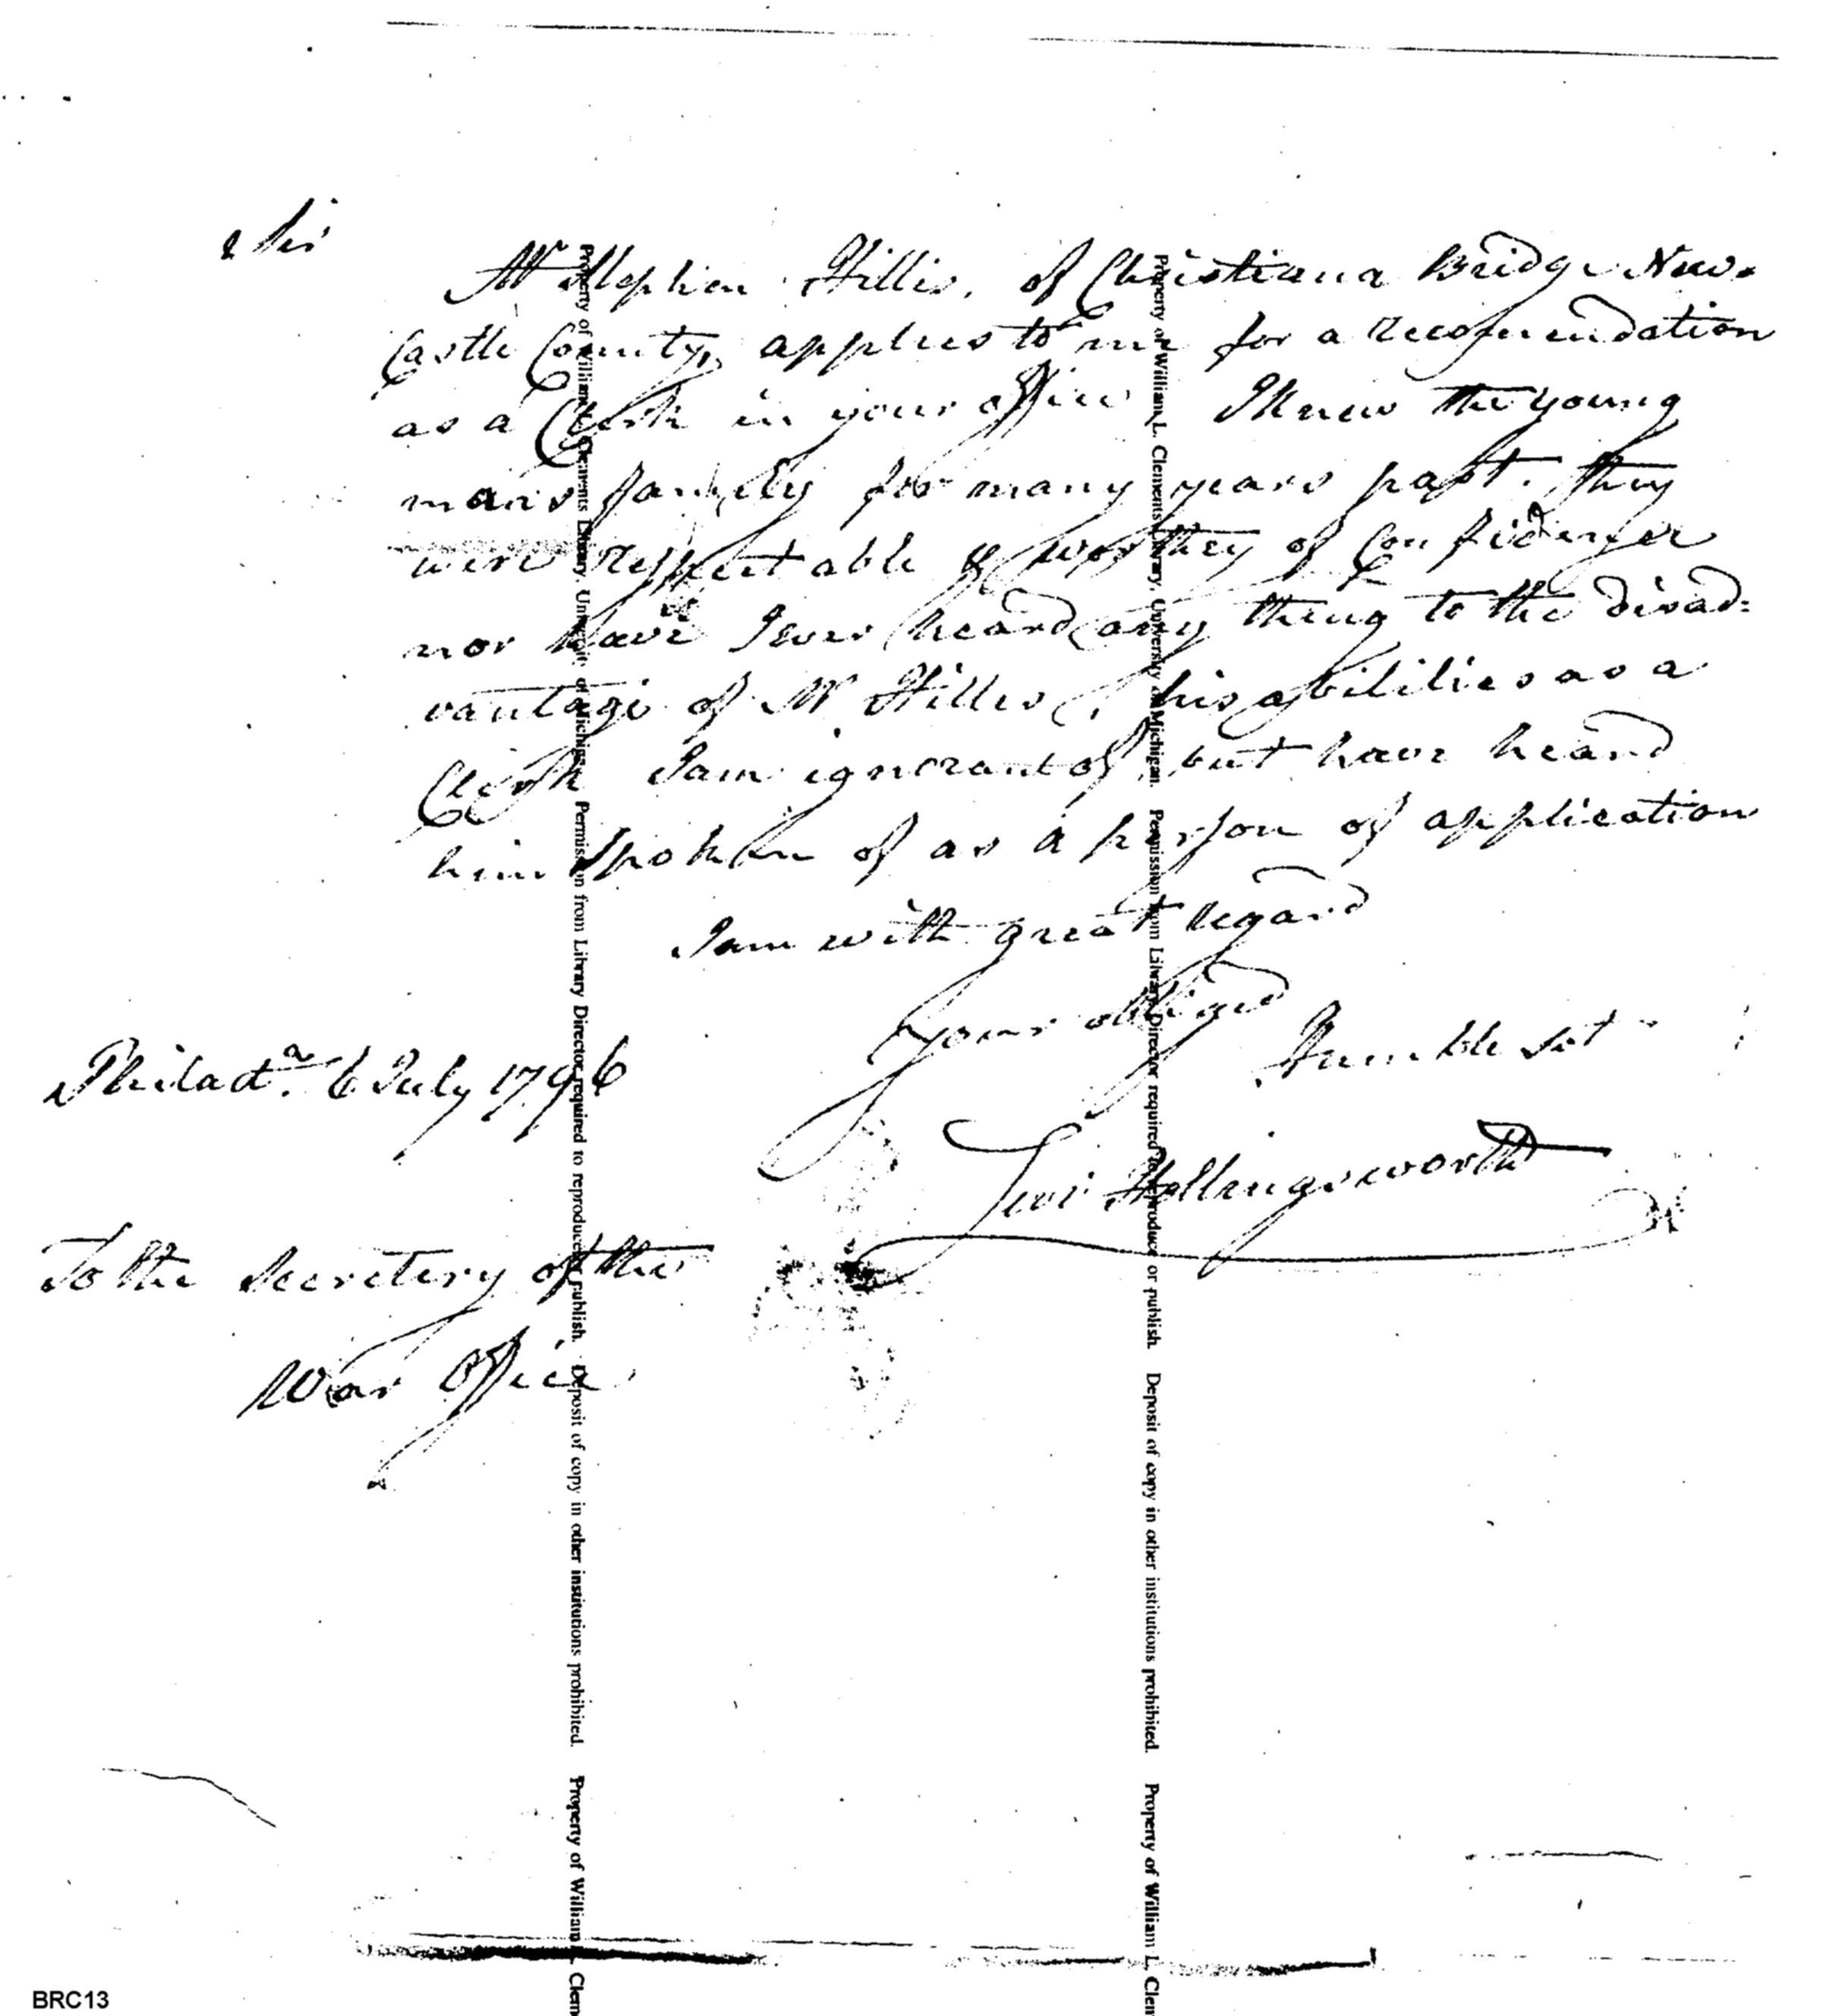 Sir
Mr Stephen Hillis, of Christiana Bridge New
Castle County, applies to me for a recomendation
as a Clerk in your office I knew the young
mans family for many years past. they
were respectable & worthey of Confidence
nor have I ever heard any thing to the disad=
vantage of Mr Hilles, his abilities as a
Clerk I am ignorant of, but have heard
him spoken of as a person of application
I am with great regard
your obliged
Humble Sr't
Philad.a 6 July 1796
Levi Hollingsworth
To the Secretery of the
War Office
Property of William L. Clements Library, University of Michigan. Permission from Library Director required to reproduce or publish. Deposit of copy in other institutions prohibited. Property of William L. Clem
Property of William L. Clements Library, University of Michigan. Permission from Library Director required to reproduce or publish. Deposit of copy in other institutions prohibited. Property of William L. Clem
BRC13